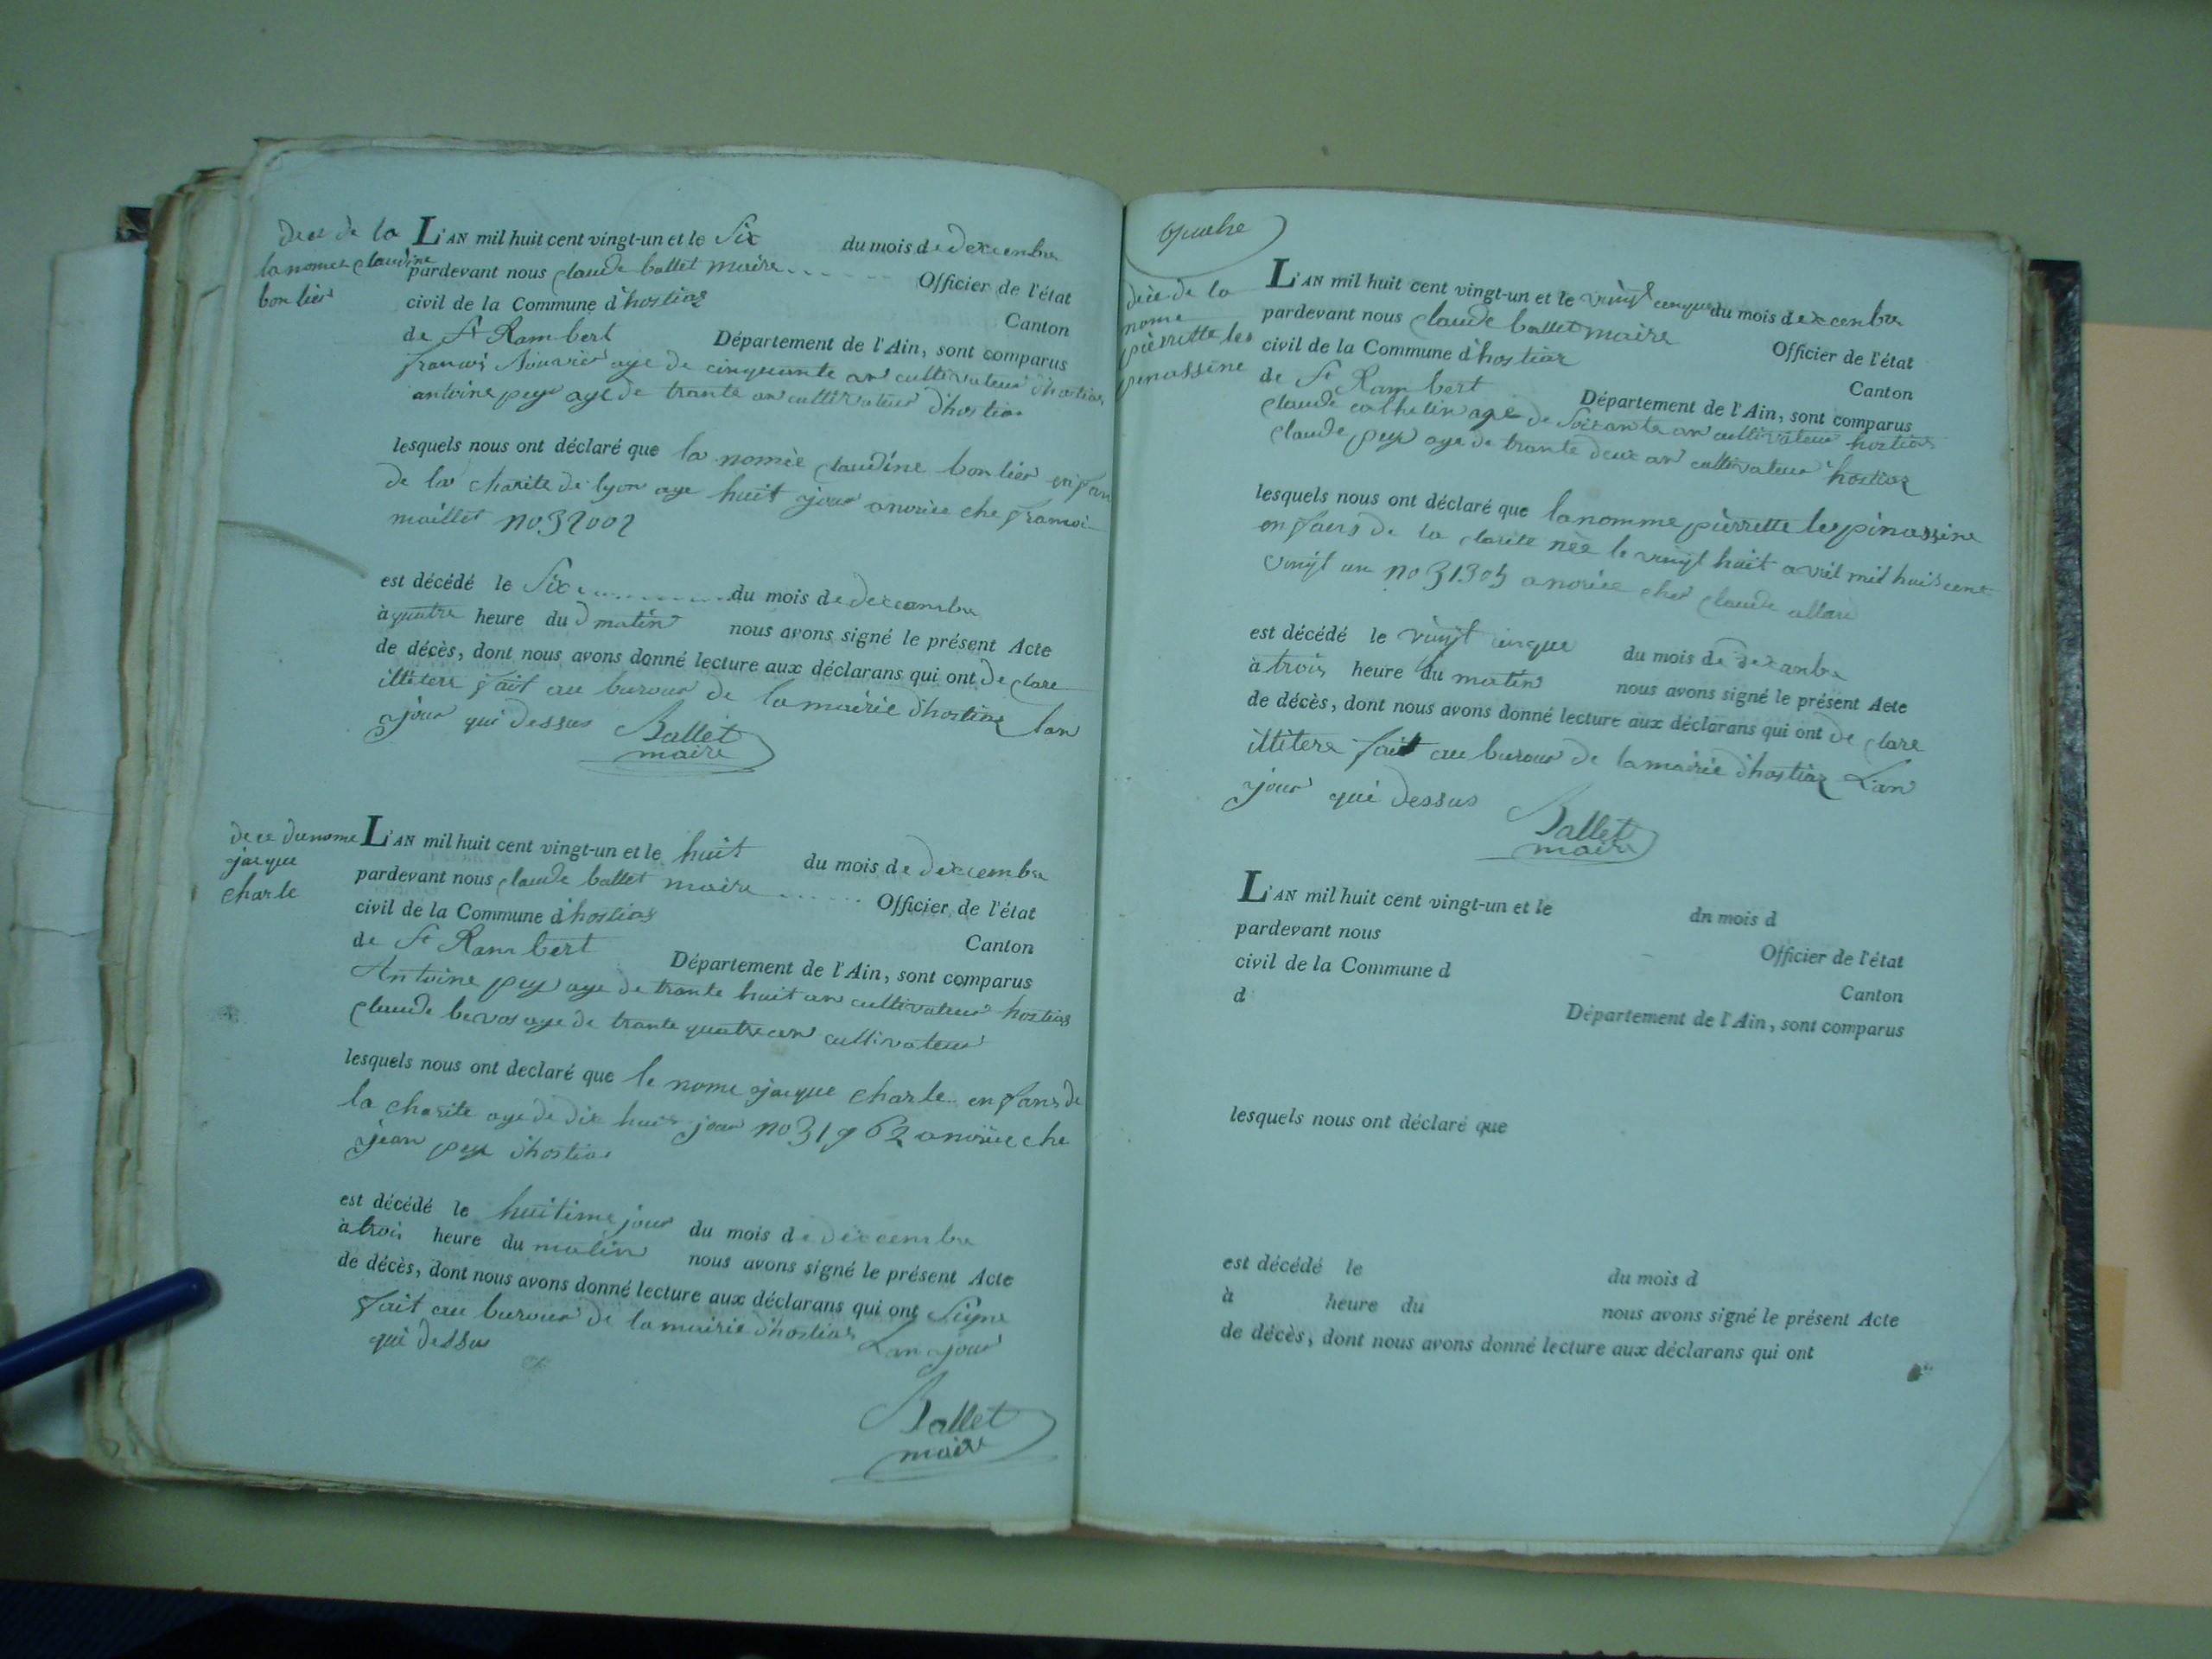 dece de la
la nomee claudine
bon lier
L'AN mil huit cent vingt-un et le Six du mois de dexcembre
pardevant nous claude ballet maire Officier de l'état
civil de la Commune d'hostias Canton
de St Rambert Département de l'Ain, sont comparus
françois age de cinquante an cultivateur d'hostias
antoine pey age de trante an cultivateur d'hostias
lesquels nous ont déclaré que la nomèe claudine bon lier enfan
de la charite de lyon age huit jour anorice che framoi
maillet no 32002
est décédé le Six du mois de dexcambre
à quatre heure du matin nous avons signé le présent Acte
de décès, dont nous avons donné lecture aux déclarans qui ont declare
illitere fait au burour de la mairie d'hostias lan
ajour qui dessus Ballet
maire
dece du nome
jacque
charle
L'AN mil huit cent vingt-un et le huit du mois de dexcembre
pardevant nous claude ballet maire Officier de l'état
civil de la Commune d'hostias Canton
de St Rambert Département de l'Ain, sont comparus
Antoine pey age de trante huit an cultivateur hostias
claude bevos age de trante quatre an cultivateur
lesquels nous ont declaré que le nome jacque charle enfans de
la charite age de dix huit jour no 31962 anorice che
jean pey d'hostias
est décédé le huitime jour du mois de dexcembre
à trois heure du matin nous avons signé le présent Acte
de décès, dont nous avons donné lecture aux déclarans qui ont Signe
fait au burour de la mairie d'hostias Lan ajour
qui dessus
Ballet
maire
dèce de la
nome
pièrrette les
pinassine
L'AN mil huit cent vingt-un et le vingt cinque du mois dexcenbre
pardevant nous claude ballet maire Officier de l'état
civil de la Commune d'hostias Canton
de St Rambert Département de l'Ain, sont comparus
claude age de Soixante an cultivateur hostias
claude pey age de trante deux an cultivateur hostias
lesquels nous ont déclaré que la nomme pièrrette lespinassine
enfans de la charite nèe le vingt huit avril mil huit cent
vingt un no 31305 anorice cher claude allare
est décédé le vingt cinque du mois de dexcanbre
à trois heure du matin nous avons signé le présent Acte
de décès, dont nous avons donné lecture aux déclarans qui ont declare
illitere fait au burour de la mairie d'hostias Lan
ajour qui dessus
Ballet
maire
L'AN mil huit cent vingt-un et le dn mois d
pardevant nous Officier de l'état
civil de la Commune d Canton
d Département de l'Ain, sont comparus
lesquels nous ont déclaré que
est décédé le du mois d
à heure du nous avons signé le présent Acte
de décès, dont nous avons donné lecture aux déclarans qui ont